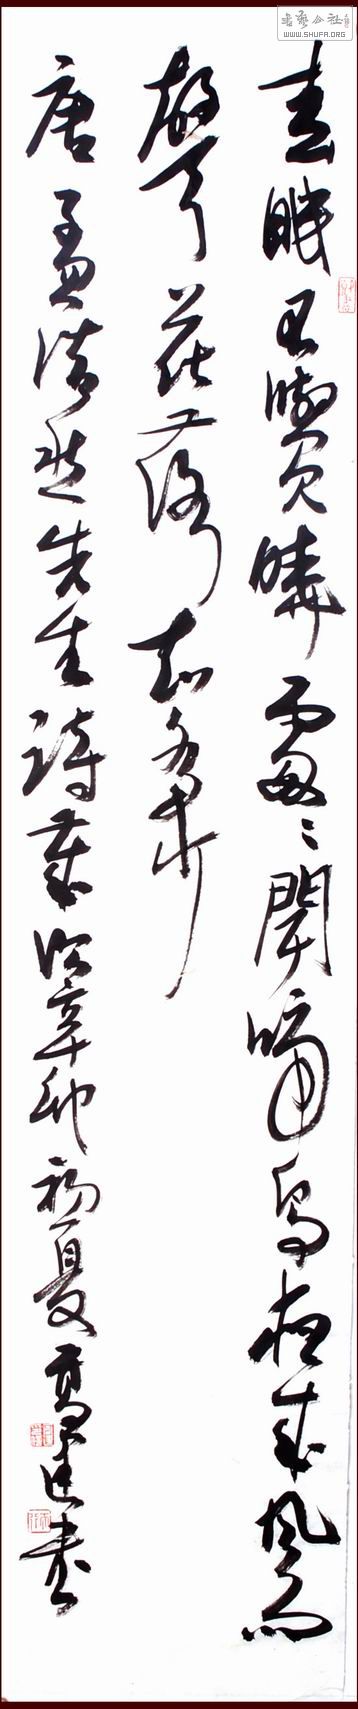 书艺公社
WWW.SHUFA.ORG
春眠不覺曉處々聞啼鳥夜来風雨
聲花落知多少
唐孟浩然先生詩歲次辛卯初夏高書